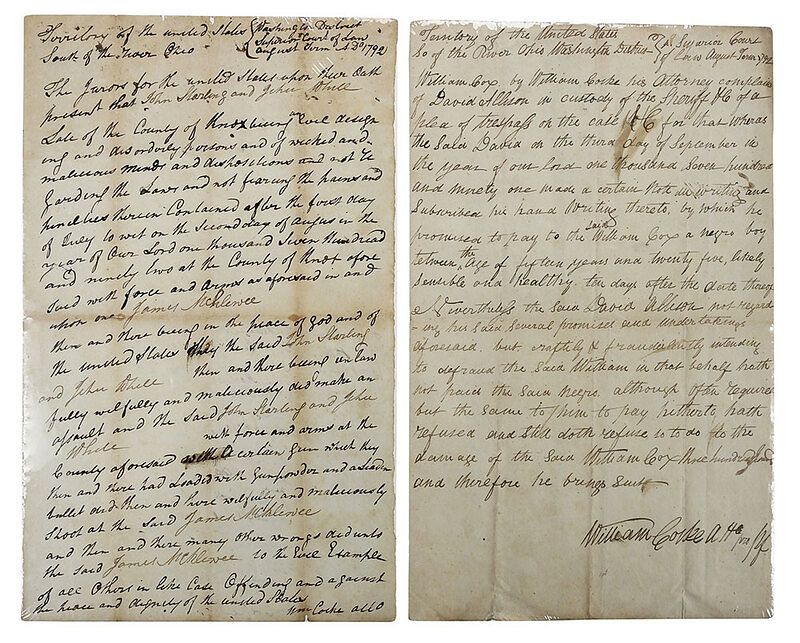 Territory of the united States
South of the River Ohio
Washington District
Superior Court of Law
august Term A.D. 1792
The Jurors for the united States upon their Oath
present that John Starling and John White
Late of the County of Knox being evil design
ing and disorderly persons and of wicked and
malicious minds and dispositions and not re
garding the Laws and not fearing the pains and
penelties therein Contained after the first day
of July to wit on the Second day of augus in the
year of Our Lord one thousand Seven Hundread
and ninety two at the County of Knox afore
said with force and arms as aforesaid in and
upon one James McElewee
then and there being in the peace of God and of
the united States they the said John Starling
and John White then and there being unlaw
fully wilfully and maliciously did make an
assault and the said John Starling and John
White with force and arms at the
County aforesaid with a certain Gun which they
then and there had Loaded with Gunpowder and a Leaden
bullet did then and there wilfully and maliciously
Shoot at the said James McElewee
and then and there many other wrongs did unto
the said James McElewee to the Evil Example
of all Others in like Case Offending and against
the peace and dignity of the united States
Wm Cocke
Territory of the United States
So of the River Ohio Washington District
Superior Court
of Law August Term 1792
William Cox by William Cocke his Attorney complains
of David Allison in custody of the Sheriff &C of a
plea of trespass on the case &C for that whereas
the Said David on the third day of September in
the year of our lord one thousand Seven hundred
and ninety one made a certain Note in writing and
Subscribed his hand Writing thereto, by which he
promised to pay to the Said William Cox a negro boy
between the Age of fifteen years and twenty five, likely
Sensible and healthy, ten days after the date thereof
Nevertheless the Said David Allison not regard
-ing his Said Several promises and undertakings
aforesaid but craftily & fraudulently intending
to defraud the Said William in that behalf hath
not paid the Said Negro although Often required
but the Same to him to pay hitherto hath
refused and Still doth refuse so to do to the
damage of the Said William Cox three hundred
and therefore he brings Suit
William Cocke Att